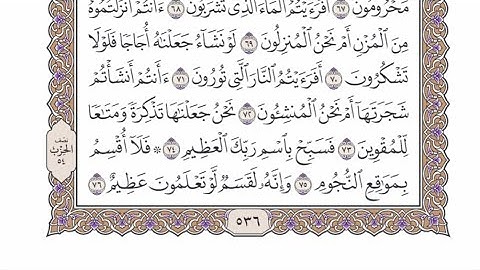 مَحْرُومُونَ ٦٧ أَفَرَءَيْتُمُ ٱلْمَآءَ ٱلَّذِى تَشْرَبُونَ ٦٨ ءَأَنتُمْ أَنزَلْتُمُوهُ
مِنَ ٱلْمُزْنِ أَمْ نَحْنُ ٱلْمُنزِلُونَ ٦٩ لَوْ نَشَآءُ جَعَلْنَٰهُ أُجَاجًا فَلَوْلَا
تَشْكُرُونَ ٧٠ أَفَرَءَيْتُمُ ٱلنَّارَ ٱلَّتِى تُورُونَ ٧١ ءَأَنتُمْ أَنشَأْتُمْ
شَجَرَتَهَآ أَمْ نَحْنُ ٱلْمُنشِـُٔونَ ٧٢ نَحْنُ جَعَلْنَٰهَا تَذْكِرَةً وَمَتَٰعًا
لِّلْمُقْوِينَ ٧٣ فَسَبِّحْ بِٱسْمِ رَبِّكَ ٱلْعَظِيمِ ٧٤ ۞ فَلَآ أُقْسِمُ
بِمَوَٰقِعِ ٱلنُّجُومِ ٧٥ وَإِنَّهُۥ لَقَسَمٌ لَّوْ تَعْلَمُونَ عَظِيمٌ ٧٦
نصف
الحزب
٥٤
٥٣٦